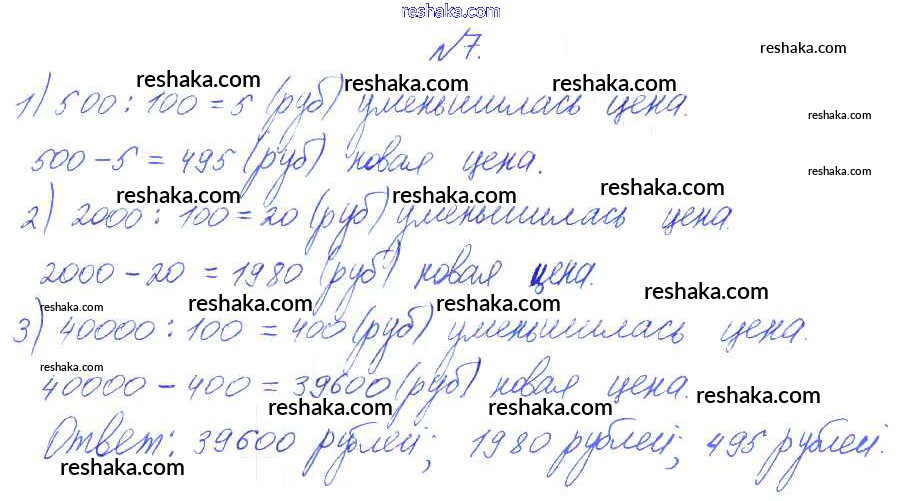 reshaka.com
№7.
reshaka.com
reshaka.com reshaka.com reshaka.com
1) 500 : 100 = 5 (руб) уменьшилась цена.
reshaka.com
500 - 5 = 495 (руб) новая цена.
reshaka.com
reshaka.com reshaka.com reshaka.com
2) 2000 : 100 = 20 (руб) уменьшилась цена.
2000 - 20 = 1980 (руб) новая цена.
reshaka.com reshaka.com reshaka.com reshaka.com
3) 40000 : 100 = 400 (руб) уменьшилась цена.
reshaka.com
40000 - 400 = 39600 (руб) новая цена.
reshaka.com reshaka.com reshaka.com
Ответ: 39600 рублей; 1980 рублей; 495 рублей.
reshaka.com